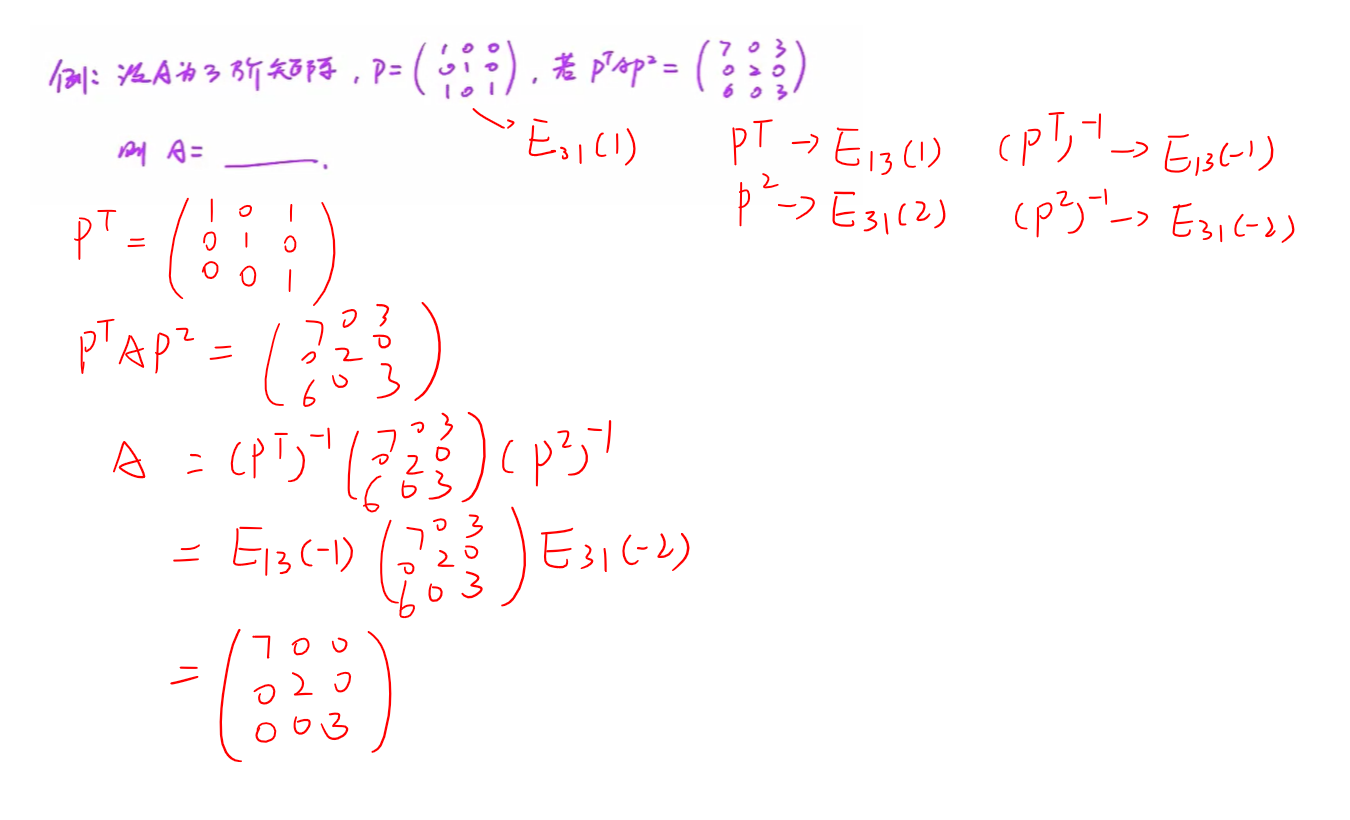 例: 设A为3阶矩阵, P=(1 0 0; 0 1 0; 1 0 1), 若 P^T A P^2 = (7 0 3; 0 2 0; 6 0 3)
则 A= ______.
→ E_31(1)
P^T → E_13(1) (P^T)^-1 → E_13(-1)
P^2 → E_31(2) (P^2)^-1 → E_31(-2)
P^T = (1 0 1; 0 1 0; 0 0 1)
P^T A P^2 = (7 0 3; 0 2 0; 6 0 3)
A = (P^T)^-1 (7 0 3; 0 2 0; 6 0 3) (P^2)^-1
= E_13(-1) (7 0 3; 0 2 0; 6 0 3) E_31(-2)
= (7 0 0; 0 2 0; 0 0 3)